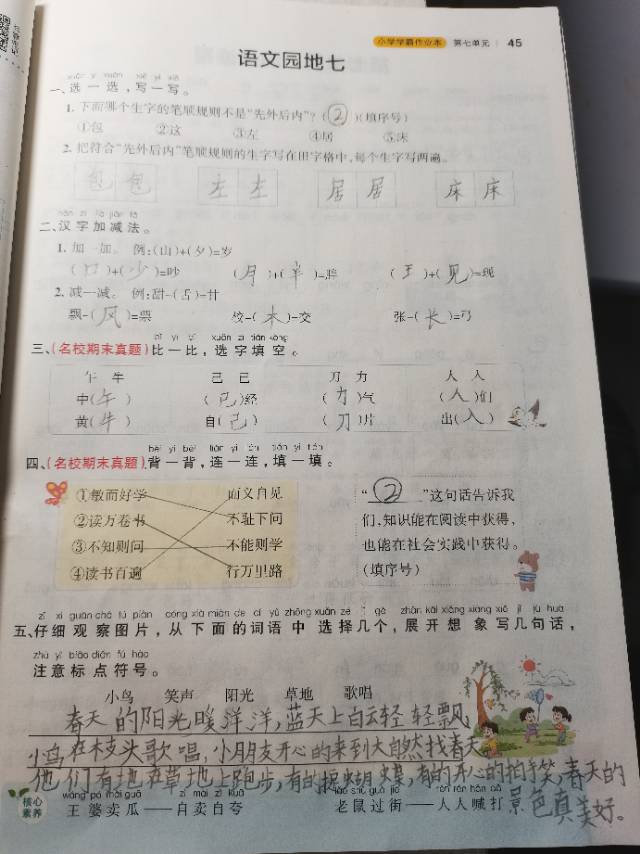 小学学霸作业本 第七单元 45
语文园地七
一、选一选，写一写。
1. 下面哪个生字的笔顺规则不是“先外后内”？(②)(填序号)
①包 ②这 ③左 ④居 ⑤床
2. 把符合“先外后内”笔顺规则的生字写在田字格中，每个生字写两遍。
包 包 左 左 居 居 床 床
二、汉字加减法。
1. 加一加。 例：(山)+(夕)=岁
(口)+(少)=吵 (月)+(半)=胖 (王)+(见)=现
2. 减一减。 例：甜-(舌)=甘
飘-(风)=票 校-(木)=交 张-(长)=弓
三、(名校期末真题)比一比，选字填空。
午 牛 己 已 刀 力 人 入
中(午) (已)经 (力)气 (人)们
黄(牛) 自(己) (刀)片 出(入)
bèi yi bèi lián yi lián tián yi tián
四、(名校期末真题)背一背，连一连，填一填。
①敏而好学 而义自见 “②”这句话告诉我
②读万卷书 不耻下问 们，知识能在阅读中获得，
③不知则问 不能则学 也能在社会实践中获得。
④读书百遍 行万里路 (填序号)
五、仔细观察图片，从下面的词语中选择几个，展开想象写几句话，
zhù yì biāo diǎn fú hào
注意标点符号。
小鸟 笑声 阳光 草地 歌唱
春天的阳光暖洋洋，蓝天上白云轻轻飘
小鸟在枝头歌唱，小朋友开心的来到大自然找春天。
他们有地在草地上跑步，有的捉蝴蝶，有的开心的拍手笑，春天的
景色真美好。
核心素养
wáng pó mài guā zì mài zì kuā lǎo shǔ guò jiē rén rén hǎn dǎ
王婆卖瓜——自卖自夸 老鼠过街——人人喊打